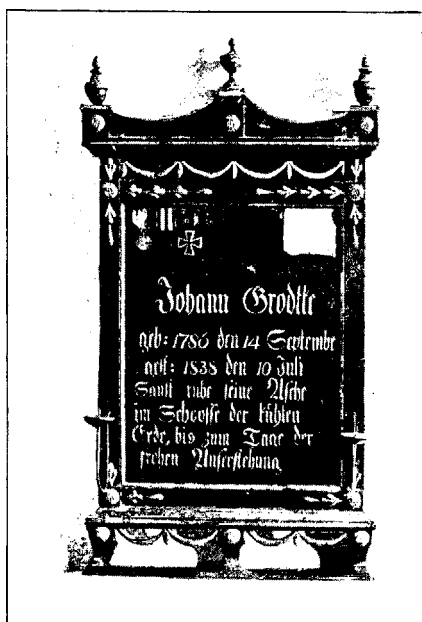 Johann Grodtke
geb: 1786 den 14 Septembe
gest: 1838 den 10 Juli
Sanft ruhe seine Asche
im Schoosse der kühlen
Erde, bis zum Tage der
frohen Auferstehung